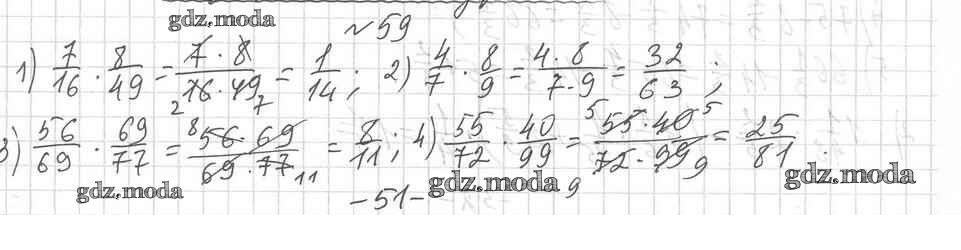 gdz.moda
№59
1) 7/16 · 8/49 = 7 · 8 / 16 · 49 2 7 = 1/14 ; 2) 4/7 · 8/9 = 4 · 8 / 7 · 9 = 32/63 ;
3) 56/69 · 69/77 = 8 56 · 69 / 69 · 77 11 = 8/11 ; 4) 55/72 · 40/99 = 5 55 · 40 5 / 72 · 99 9 9 = 25/81 .
gdz.moda gdz.moda gdz.moda
-51-